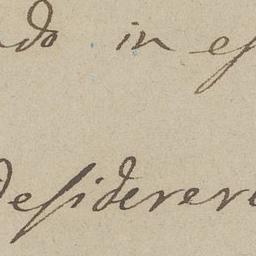 ndo in es
desiderere